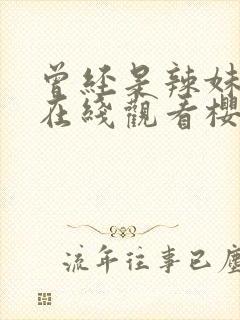 曾經是辣妹
在綫觀看櫻
流年往事已塵